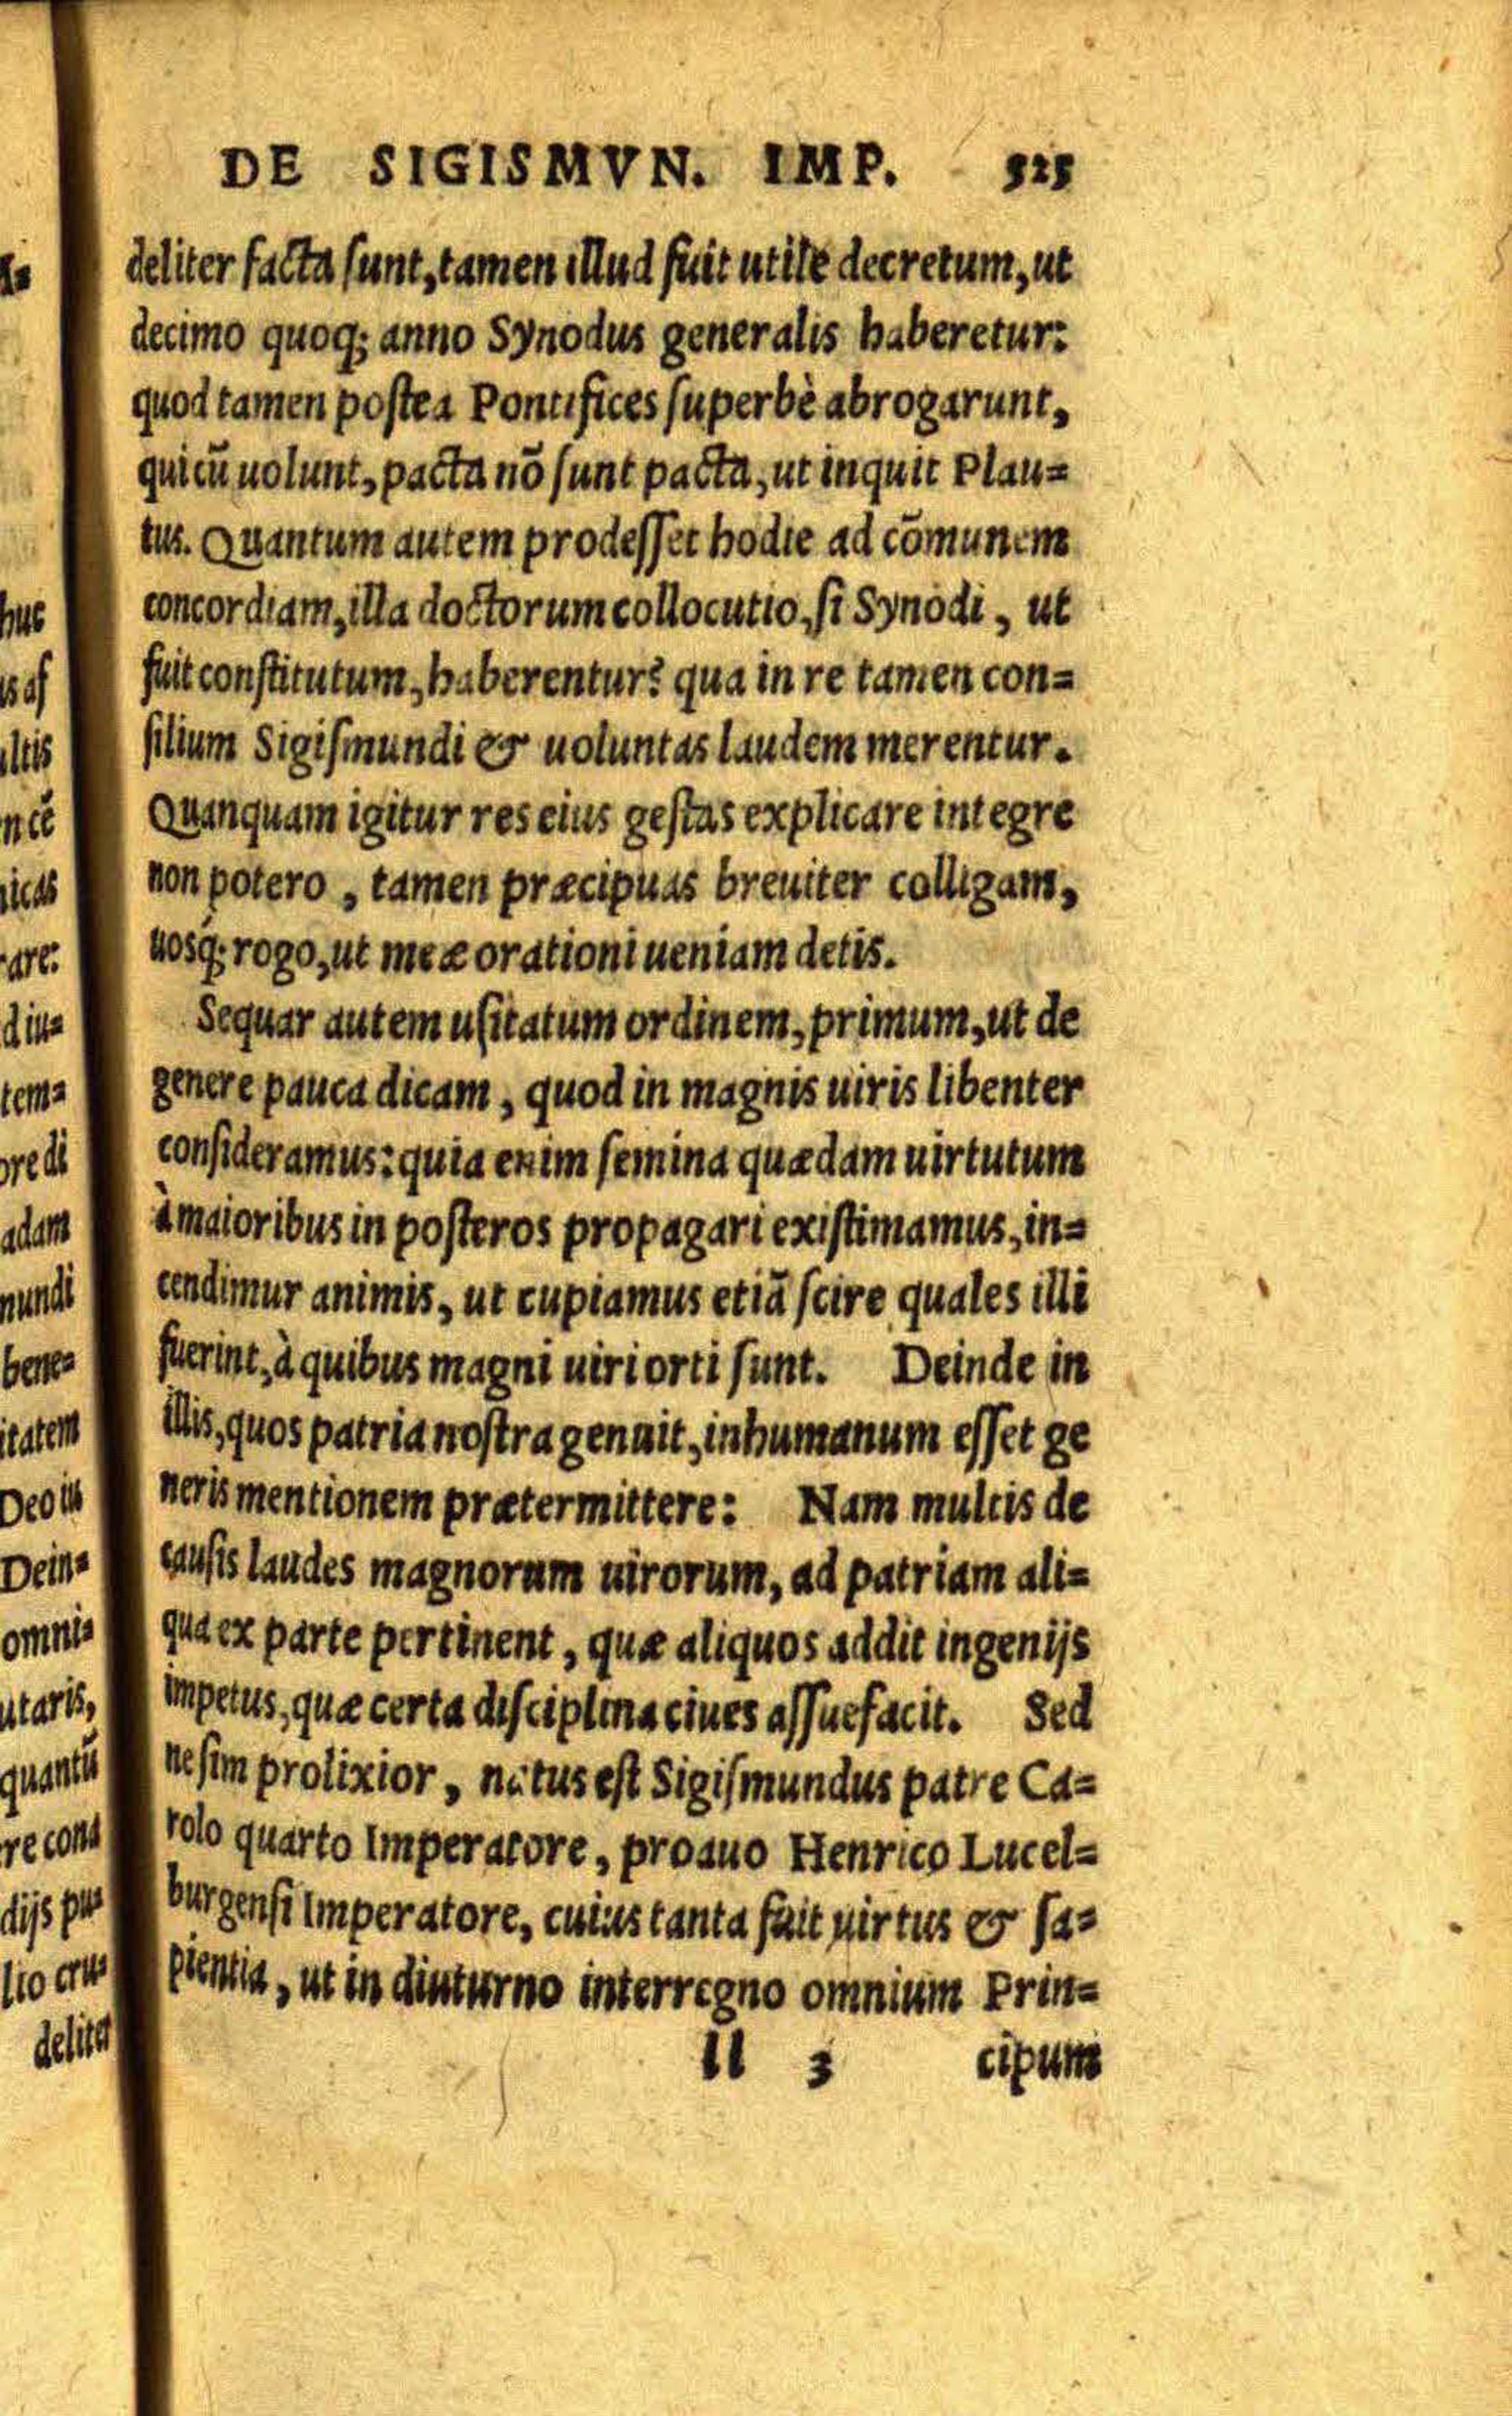 DE SIGISMVN. IMP. 525
deliter facta sunt, tamen illud fuit utile decretum, ut
decimo quoq; anno Synodus generalis haberetur:
quod tamen postea Pontifices superbè abrogarunt,
qui cũ uolunt, pacta nõ sunt pacta, ut inquit Plau=
tus. Quantum autem prodesset hodie ad cõmunem
concordiam, illa doctorum collocutio, si Synodi, ut
fuit constitutum, haberentur? qua in re tamen con=
silium Sigismundi & uoluntas laudem merentur.
Quanquam igitur res eius gestas explicare integre
non potero, tamen præcipuas breuiter colligam,
uosq́; rogo, ut meæ orationi ueniam detis.
Sequar autem usitatum ordinem, primum, ut de
genere pauca dicam, quod in magnis uiris libenter
consideramus: quia enim semina quædam uirtutum
à maioribus in posteros propagari existimamus, in=
cendimur animis, ut cupiamus etiã scire quales illi
fuerint, à quibus magni uiri orti sunt. Deinde in
illis, quos patria nostra genuit, inhumanum esset ge
neris mentionem prætermittere: Nam multis de
causis laudes magnorum uirorum, ad patriam ali=
qua ex parte pertinent, quæ aliquos addit ingenijs
impetus, quæ certa disciplina ciues assuefacit. Sed
ne sim prolixior, natus est Sigismundus patre Ca=
rolo quarto Imperatore, proauo Henrico Lucel=
burgensi Imperatore, cuius tanta fuit uirtus & sa=
pientia, ut in diuturno interregno omnium Prin=
ll 3 cipum